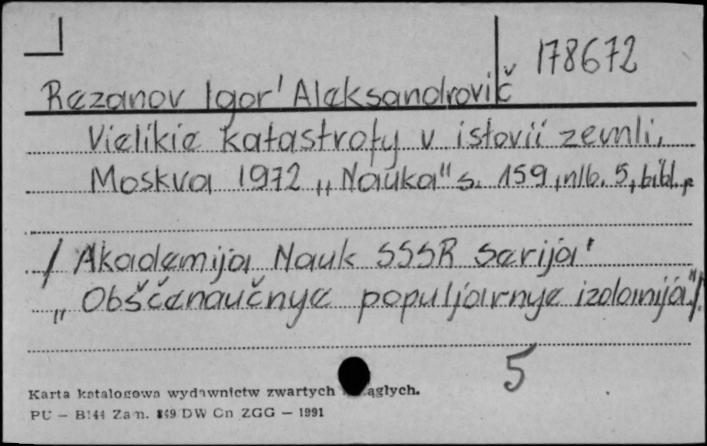 178672
Rezanov Igor' Aleksandrovič
Vielikie katastrofy v istorii zemli,
Moskva 1972 „Nauka" s. 159, nlb. 5, bibl.
/ Akademija Nauk SSSR Serija
„Obščenaučnye populjarnye izdanija"/.
5
Karta katalogowa wydawnictw zwartych ągłych.
PU – B144 Zam. 849 DW Cn ZGG – 1991